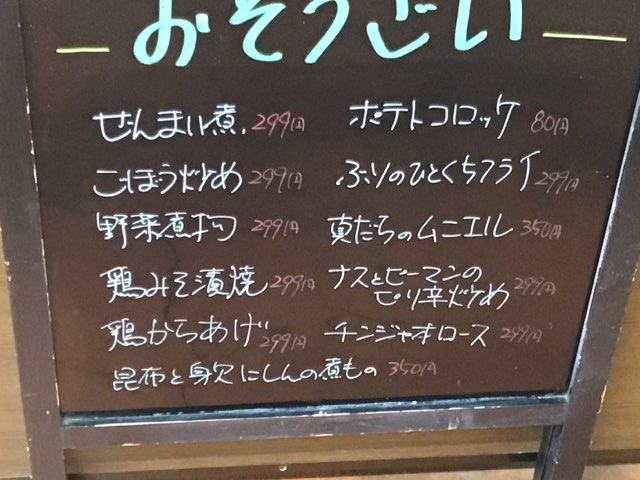 おそうざい
ぜんまい煮. 299円
ごぼう炒め 299円
野菜煮物 299円
鶏みそ漬焼 299円
鶏からあげ 299円
ポテトコロッケ 80円
ぶりのひとくちフライ 299円
真だらのムニエル 350円
ナスとピーマンの
ピリ辛炒め 299円
チンジャオロース 299円
昆布と身欠にしんの煮もの 350円